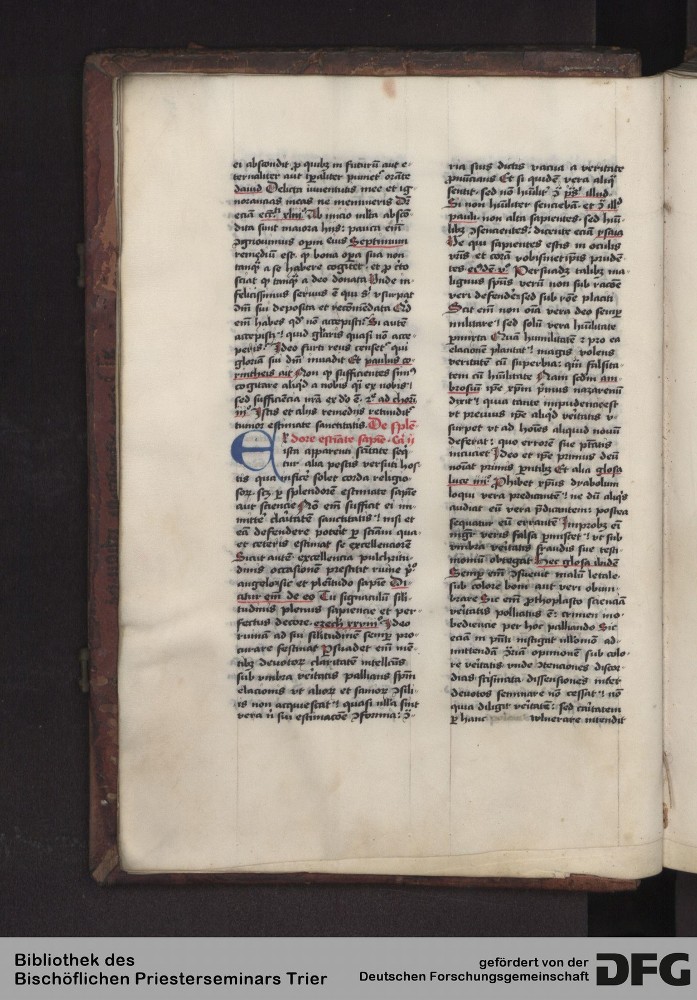 ei abscondit ꝓ quibꝫ in futurū aut e-
ternaliter aut tꝑaliter puniet᷑ orāte
dauid Delicta iuuentutis mee et ig
norancias meas ne memineris
Ab inicio ml̄ta absco
dita sunt maiora hijs: pauca em̄
ꝯgnouimus oꝑm eius Septimum
remediū est ꝙ bona oꝑa sua non
tanqͣ a se habere cogitet et ꝓ c̄to
sciat ꝙ tanqͣ a deo donata Unde in-
felicissimus seruus ē qui sͥ vsurpat
dm̄ sui deposita et recōmēdata
em̄ habes qd̓ nō accepisti Si autē
accepisti quid gl̓aris quasi nō acce-
peris Ideo furti reus censet᷑ qui
gloriā sui dm̄ inuadit Et paulus co-
rintheis ait Non ꝙ sufficientes sim᷒
cogitare aliqͥd a nobis qͣ ex nobis
sed sufficiēcia nr̄a ex do ē
Istis et alijs remedijs retundit᷑
tumor estimate sanctitatis De splē-
dore estimate sapīe Ca ij
Et ista apparenti sc̄itate seq̄
tur alia pestis versuti hos-
tis qua inficͤ solet corda religio-
soꝝ scꝫ ꝑ splendorem estimate sapīe
aut sciencie Nō em̄ sufficit ei im-
mitte᷑ claritatem sanctitatis nisi et
eā defendere poterit ꝑ sciam qua
et ceteris estimat se excellenciorē
Sicut autē excellencia pulchritu-
dinis occasionē prestitit ruine
angeloꝝ sic et plēitudo sapīe Di
catur em̄ de eo Tu signaculū sili-
tudinis plenus sapiencie et per-
fectus decore ezech xxviij Ideo
ruinā ad sui silitudinē semꝑ pro-
curare festinat Persuadet em̄ mē-
tibꝫ deuotoꝝ claritatē intellc̄us
sub vmbra veritatis pallians spm̄
elacionis vt alioꝝ et sanioꝝ ꝯsili-
is non acquiescat quasi nulla sint
vera nͥ sui estimac̄oe ꝯformia:
ria suis dictis vacua a veritate
ꝓnūcians Et si quidē vera aliqͣ
sentit sed nō hūilit᷑ illud
Si non hūiliter senciebā et ill̓d
pauli non alta sapientes sed hūi
libꝫ ꝯsencientes: dicente eciā ysaia
Ve qui sapientes estis in oculis
vr̄is et corā vobismetip̄is pruden-
tes Persuadꝫ talibꝫ ma-
lignus spūs verū non sub rac̄oe
veri defendēs sed sub rōne placiti
Scit em̄ non om̄a vera deo semꝑ
militare sed solū vera hūilitate
ꝑmixta Cuiꝰ humilitatē ꝛ pro ea
elacionē plantat magis volens
veritatē cū superbia: quā falsita-
tem cū hūilitate Nam scd̄m am
brosiū ip̄e xp̄m primus nazarenū
dixit qua tante impudencie est
vt preuius ip̄e aliqͥd veritatis v-
surpet vt ad hoīes aliquod nouū
deferat: quo errorē sue pͥtatis
incutiet Ideo et ip̄e primus deū
noīat primis ꝑntibꝫ Et alia glosa
luce iiij Prohibet xp̄us dyabolum
loqui vera predicantē ne dū aliqͥs
audiat eū vera p̄dicantem: postea
sequatur eū errantē Improbꝫ em̄
mg̓r veris falsa ꝑmiscet vt sub
vmbra veritatis fraudis sue testi-
moniū obtegat Hec glosa ibidē
Semꝑ em̄ ꝯsueuit malū letale
sub colore boni aut veri obum-
brare Sic em̄ ꝓthoplasto scienciā
veritatis pollicitus ē: crimen ino-
bediencie per hoc palliando Sic
eciā in pn̄ti instigat ullōmo ad-
mittendā ꝓriā opinionē sub colo-
re veritatis vnde ꝯtenciones discor-
dias scismata dissensiones inter
deuotos seminare nō cessat nō
quia diligit veritatē: sed caritatem
ꝑ hanc vulnerare intendit
Bibliothek des
Bischöflichen Priesterseminars Trier
gefördert von der
Deutschen Forschungsgemeinschaft
DFG